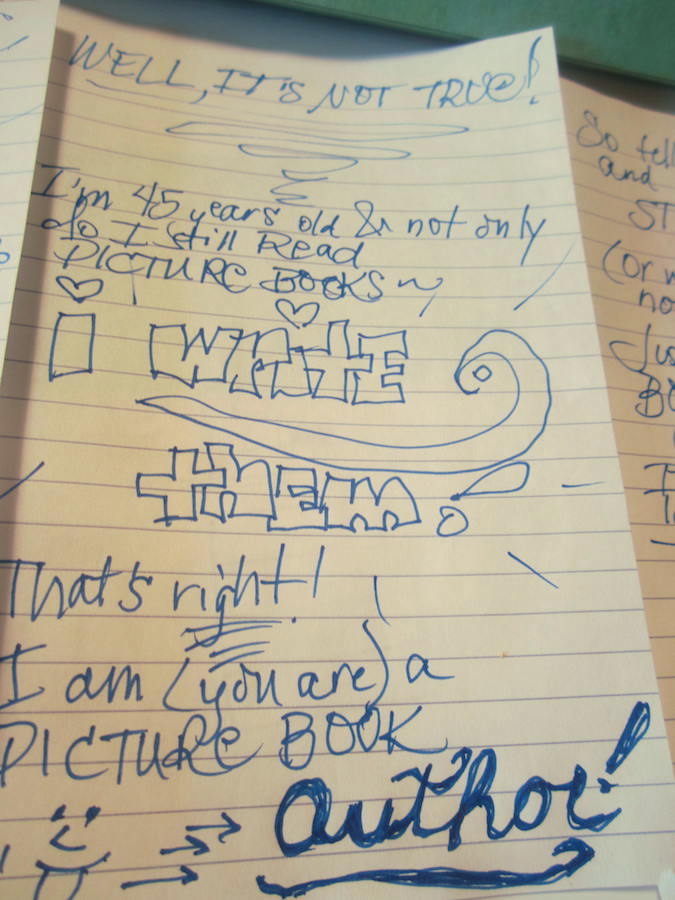 WELL, IT'S NOT TRUE!
I'm 45 years old & not only
do I still READ
PICTURE BOOKS ~
I WRITE
THEM!
That's right!
I am (you are) a
PICTURE BOOK
author!
So tell
and
ST
(or w
no
Jus
BO